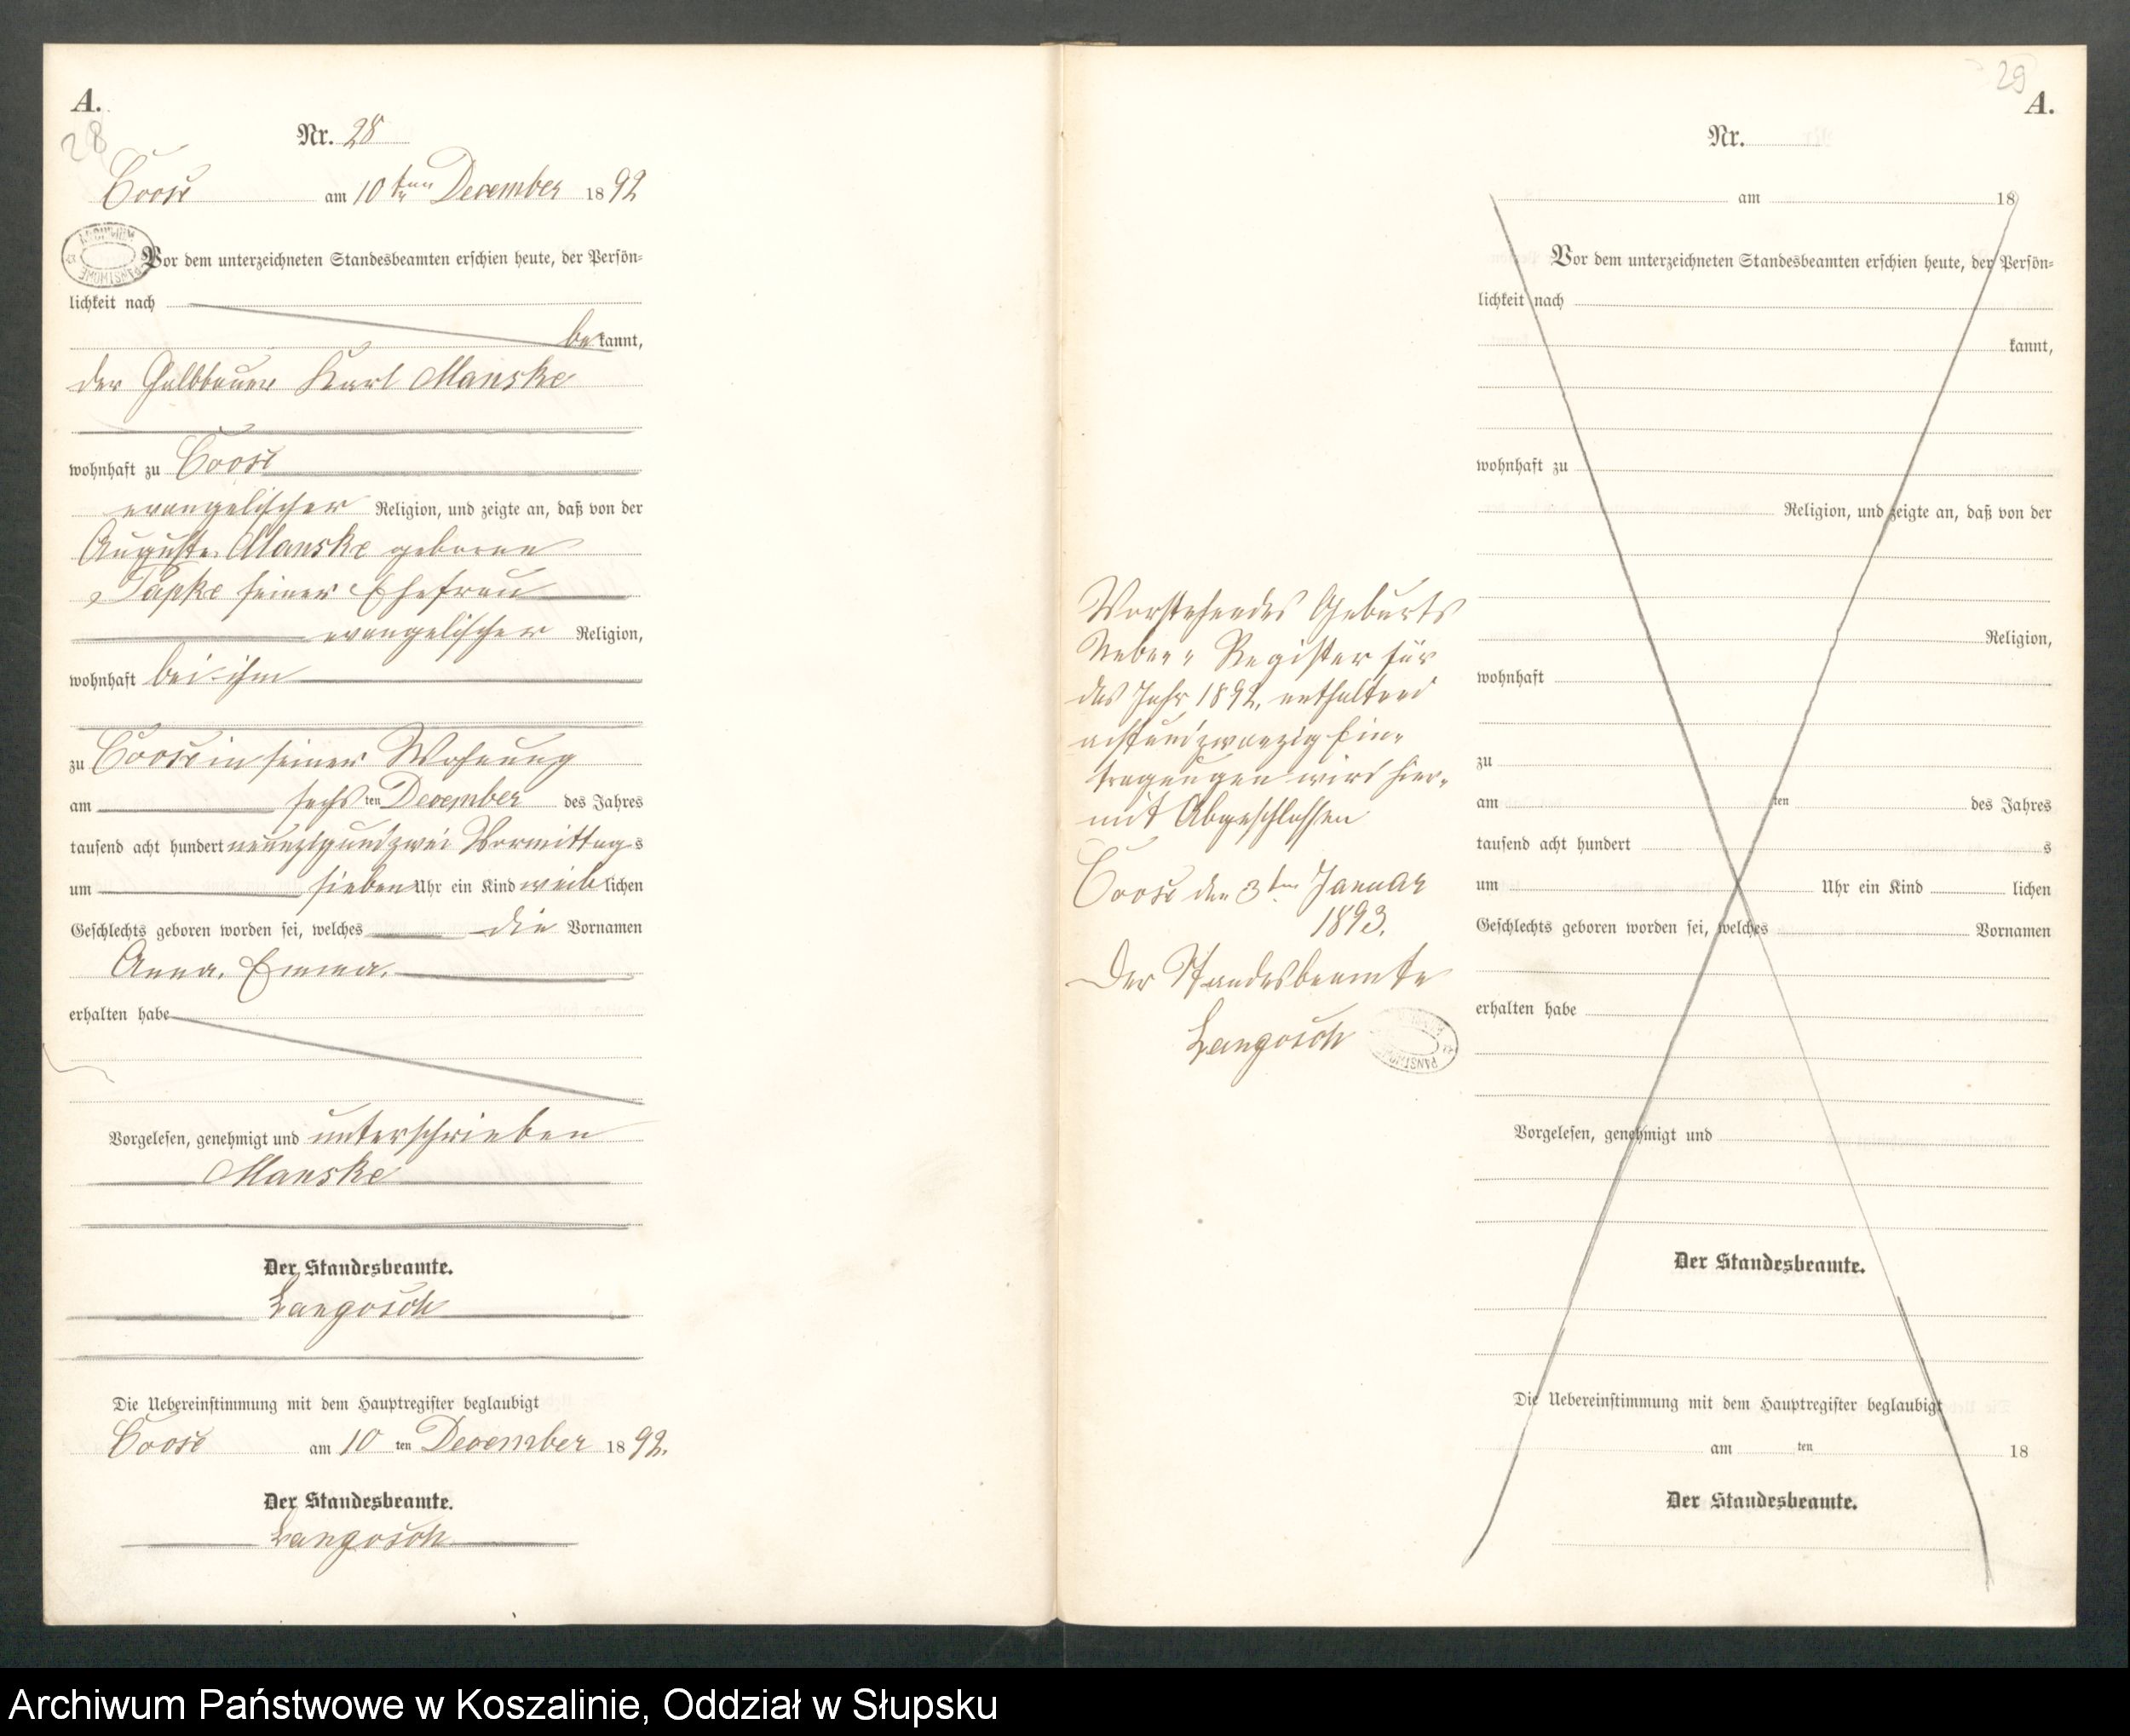 A.
28
Nr. 28
Coose am 10ten December 1892
Vor dem unterzeichneten Standesbeamten erschien heute, der Persön=
lichkeit nach
bekannt,
der Halbbauer Karl Manske
wohnhaft zu Coose
evangelischer Religion, und zeigte an, daß von der
Auguste Manske geborene
Papke seiner Ehefrau
evangelischer Religion,
wohnhaft bei ihm
zu Coose in seiner Wohnung
am sechsten December des Jahres
tausend acht hundert neunzigundzwei Vormittags
um sieben Uhr ein Kind weiblichen
Geschlechts geboren worden sei, welches die Vornamen
Anna, Emma,
erhalten habe
Vorgelesen, genehmigt und unterschrieben
Manske
Der Standesbeamte.
Langosch
Die Uebereinstimmung mit dem Hauptregister beglaubigt
Coose am 10ten December 1892.
Der Standesbeamte.
Langosch
Vorstehendes Geburts
Neben= Register für
das Jahr 1892, enthaltend
achtundzwanzig Ein=
tragungen wird hier=
mit Abgeschlossen
Coose den 3ten Januar
1893.
Der Standesbeamte
Langosch
29
A.
Nr.
am 18
Vor dem unterzeichneten Standesbeamten erschien heute, der Persön=
lichkeit nach
kannt,
wohnhaft zu
Religion, und zeigte an, daß von der
Religion,
wohnhaft
zu
am ten des Jahres
tausend acht hundert s
um Uhr ein Kind lichen
Geschlechts geboren worden sei, welches Vornamen
erhalten habe
Vorgelesen, genehmigt und
Der Standesbeamte.
Die Uebereinstimmung mit dem Hauptregister beglaubigt
am ten 18
Der Standesbeamte.
Archiwum Państwowe w Koszalinie, Oddział w Słupsku